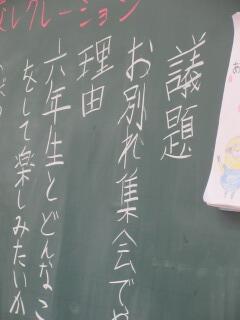 議題
お別れ集会でや
理由
六年生とどんなこ
をして楽しみたいか
レクレーション